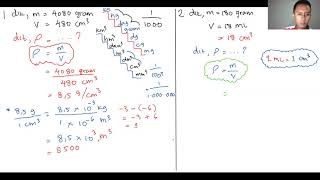 1 dit, m = 4080 gram
V = 480 cm³
dit, ρ = .... ?
ρ = m/V
= 4080 gram / 480 cm³
= 8,5 g/cm³
* 8,5 g / 1 cm³ = 8,5 × 10⁻³ kg / 1 × 10⁻⁶ m³
= 8,5 × 10³ m³
= 8500
-3 - (-6)
= -3 + 6
= 3
kg
hg
dag
gram
dg
cg
mg
1/1000
km³
hm³
dam³
m³
dm³
cm³
1/1.000.000
2 dit, m = 180 gram
V = 18 mL
= 18 cm³
dit, ρ = .... ?
1 mL = 1 cm³
ρ = m/V
=